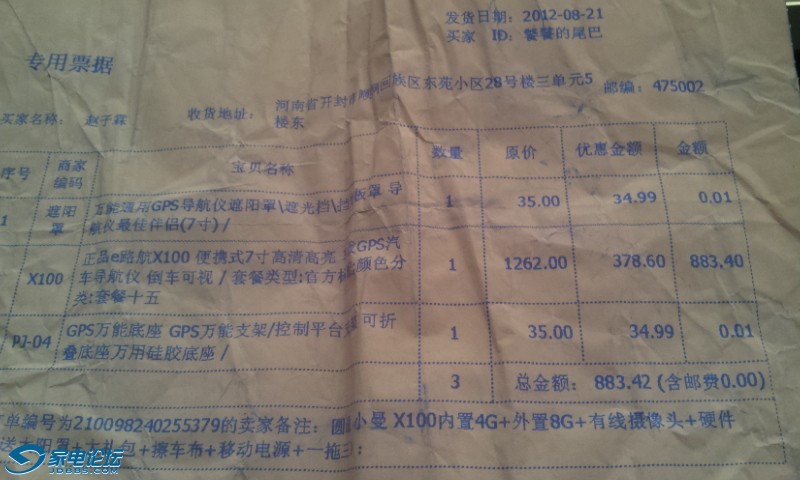 发货日期: 2012-08-21
买家 ID: 饕餮的尾巴
专用票据
买家名称: 赵子霖 收货地址: 河南省开封 族区东苑小区28号楼三单元5 邮编: 475002
楼东
序号 商家编码 宝贝名称 数量 原价 优惠金额 金额
1 遮阳罩 万能通用GPS导航仪遮阳罩\遮光档\ 板罩 导 1 35.00 34.99 0.01
航仪最佳伴侣(7寸) /
X100 正品e路航X100 便携式7寸高清高亮 GPS汽 1 1262.00 378.60 883.40
车导航仪 倒车可视 / 套餐类型:官方 颜色分
类:套餐十五
PJ-04 GPS万能底座 GPS万能支架/控制平台 可折 1 35.00 34.99 0.01
叠底座万用硅胶底座 /
3 总金额: 883.42 (含邮费0.00)
单编号为210098240255379的卖家备注: 圈 小曼 X100内置4G+外置8G+有线摄像头+硬件
送太阳罩+大礼包+擦车布+移动电源+一拖三;
家电论坛
JDBBS.COM